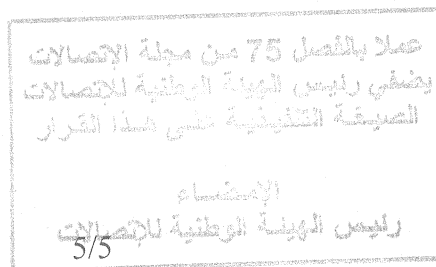 عملا بالفصل 75 من مجلة الإتصالات
يضفي رئيس الهيئة الوطنية للإتصالات
الصيغة التنفيذية على هذا القرار
الإمضاء
رئيس الهيئة الوطنية للإتصالات
5/5